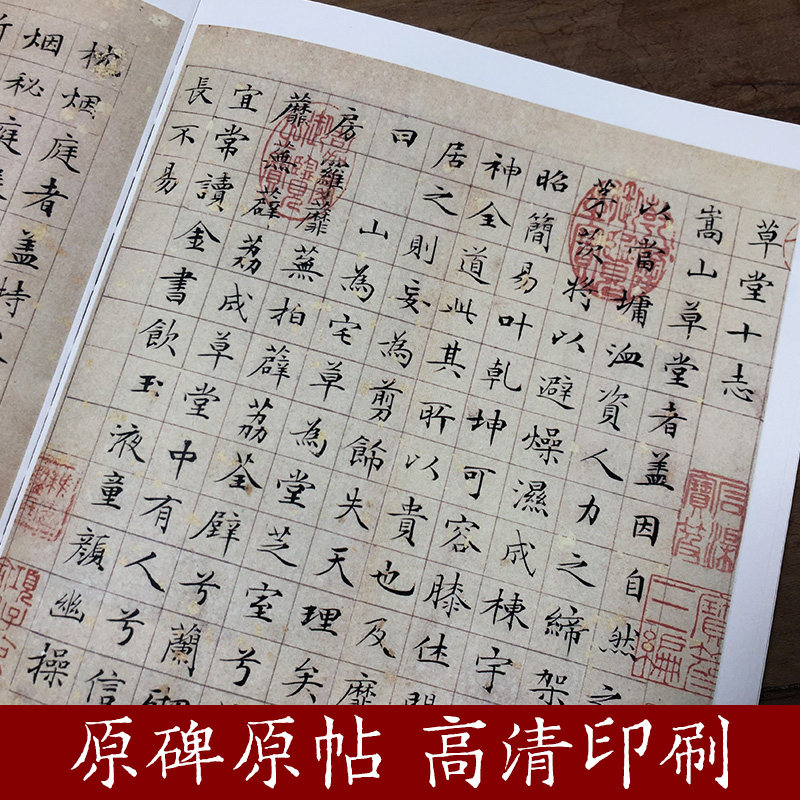 草堂十志
嵩山草堂者盖因自然之
以當墉洫資人力之締架
茅茨将以避燥濕成棟宇
昭簡易叶乾坤可容膝休閒
神全道此其所以貴也及靡
居之則妄為剪餙失天理矣
曰
山為宅草為堂芝室兮
房羅蘼蕪拍薜荔荃壁兮蘭砌
蘼蕪薜荔成草堂中有人兮信
宜常讀金書飲玉液童顏幽操
長不易
枕烟庭者盖特
烟秘庭
原碑原帖 高清印刷